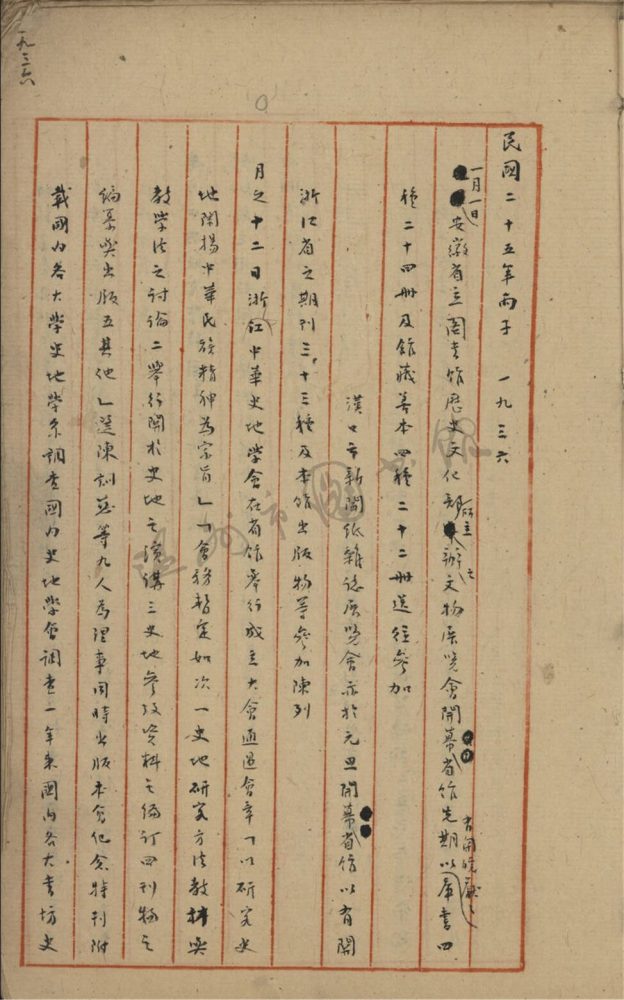 一九三六
民國二十五年丙子 一九三六
一月一日安徽省立圖書館歷史文化部所主辦之文物展覽會開幕省館先期以有關皖藏之屏書四
種二十四冊及館藏善本四種二十二冊送往參加
漢口市新聞紙雜誌展覽會亦於元旦開幕省館以有關
浙江省之期刊三十三種及本館出版物等參加陳列
月之十二日浙江中華史地學會在省館舉行成立大會通過會章「以研究史
地闡揚中華民族精神為宗旨」「會務暫定如次一史地研究方法教材與
教學法之討論二舉行關於史地之演講三史地參考資料之編訂四刊物之
編纂與出版五其他」選陳訓慈等九人為理事同時出版本會紀念特刊附
載國內各大學史地學系調查國內史地學會調查一年來國內各大書坊史
溫州市圖書館